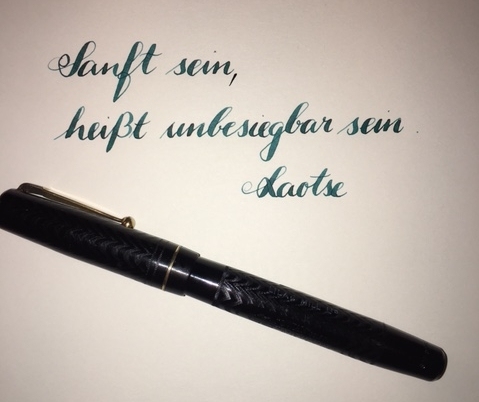 Sanft sein,
heißt unbesiegbar sein.
Laotse